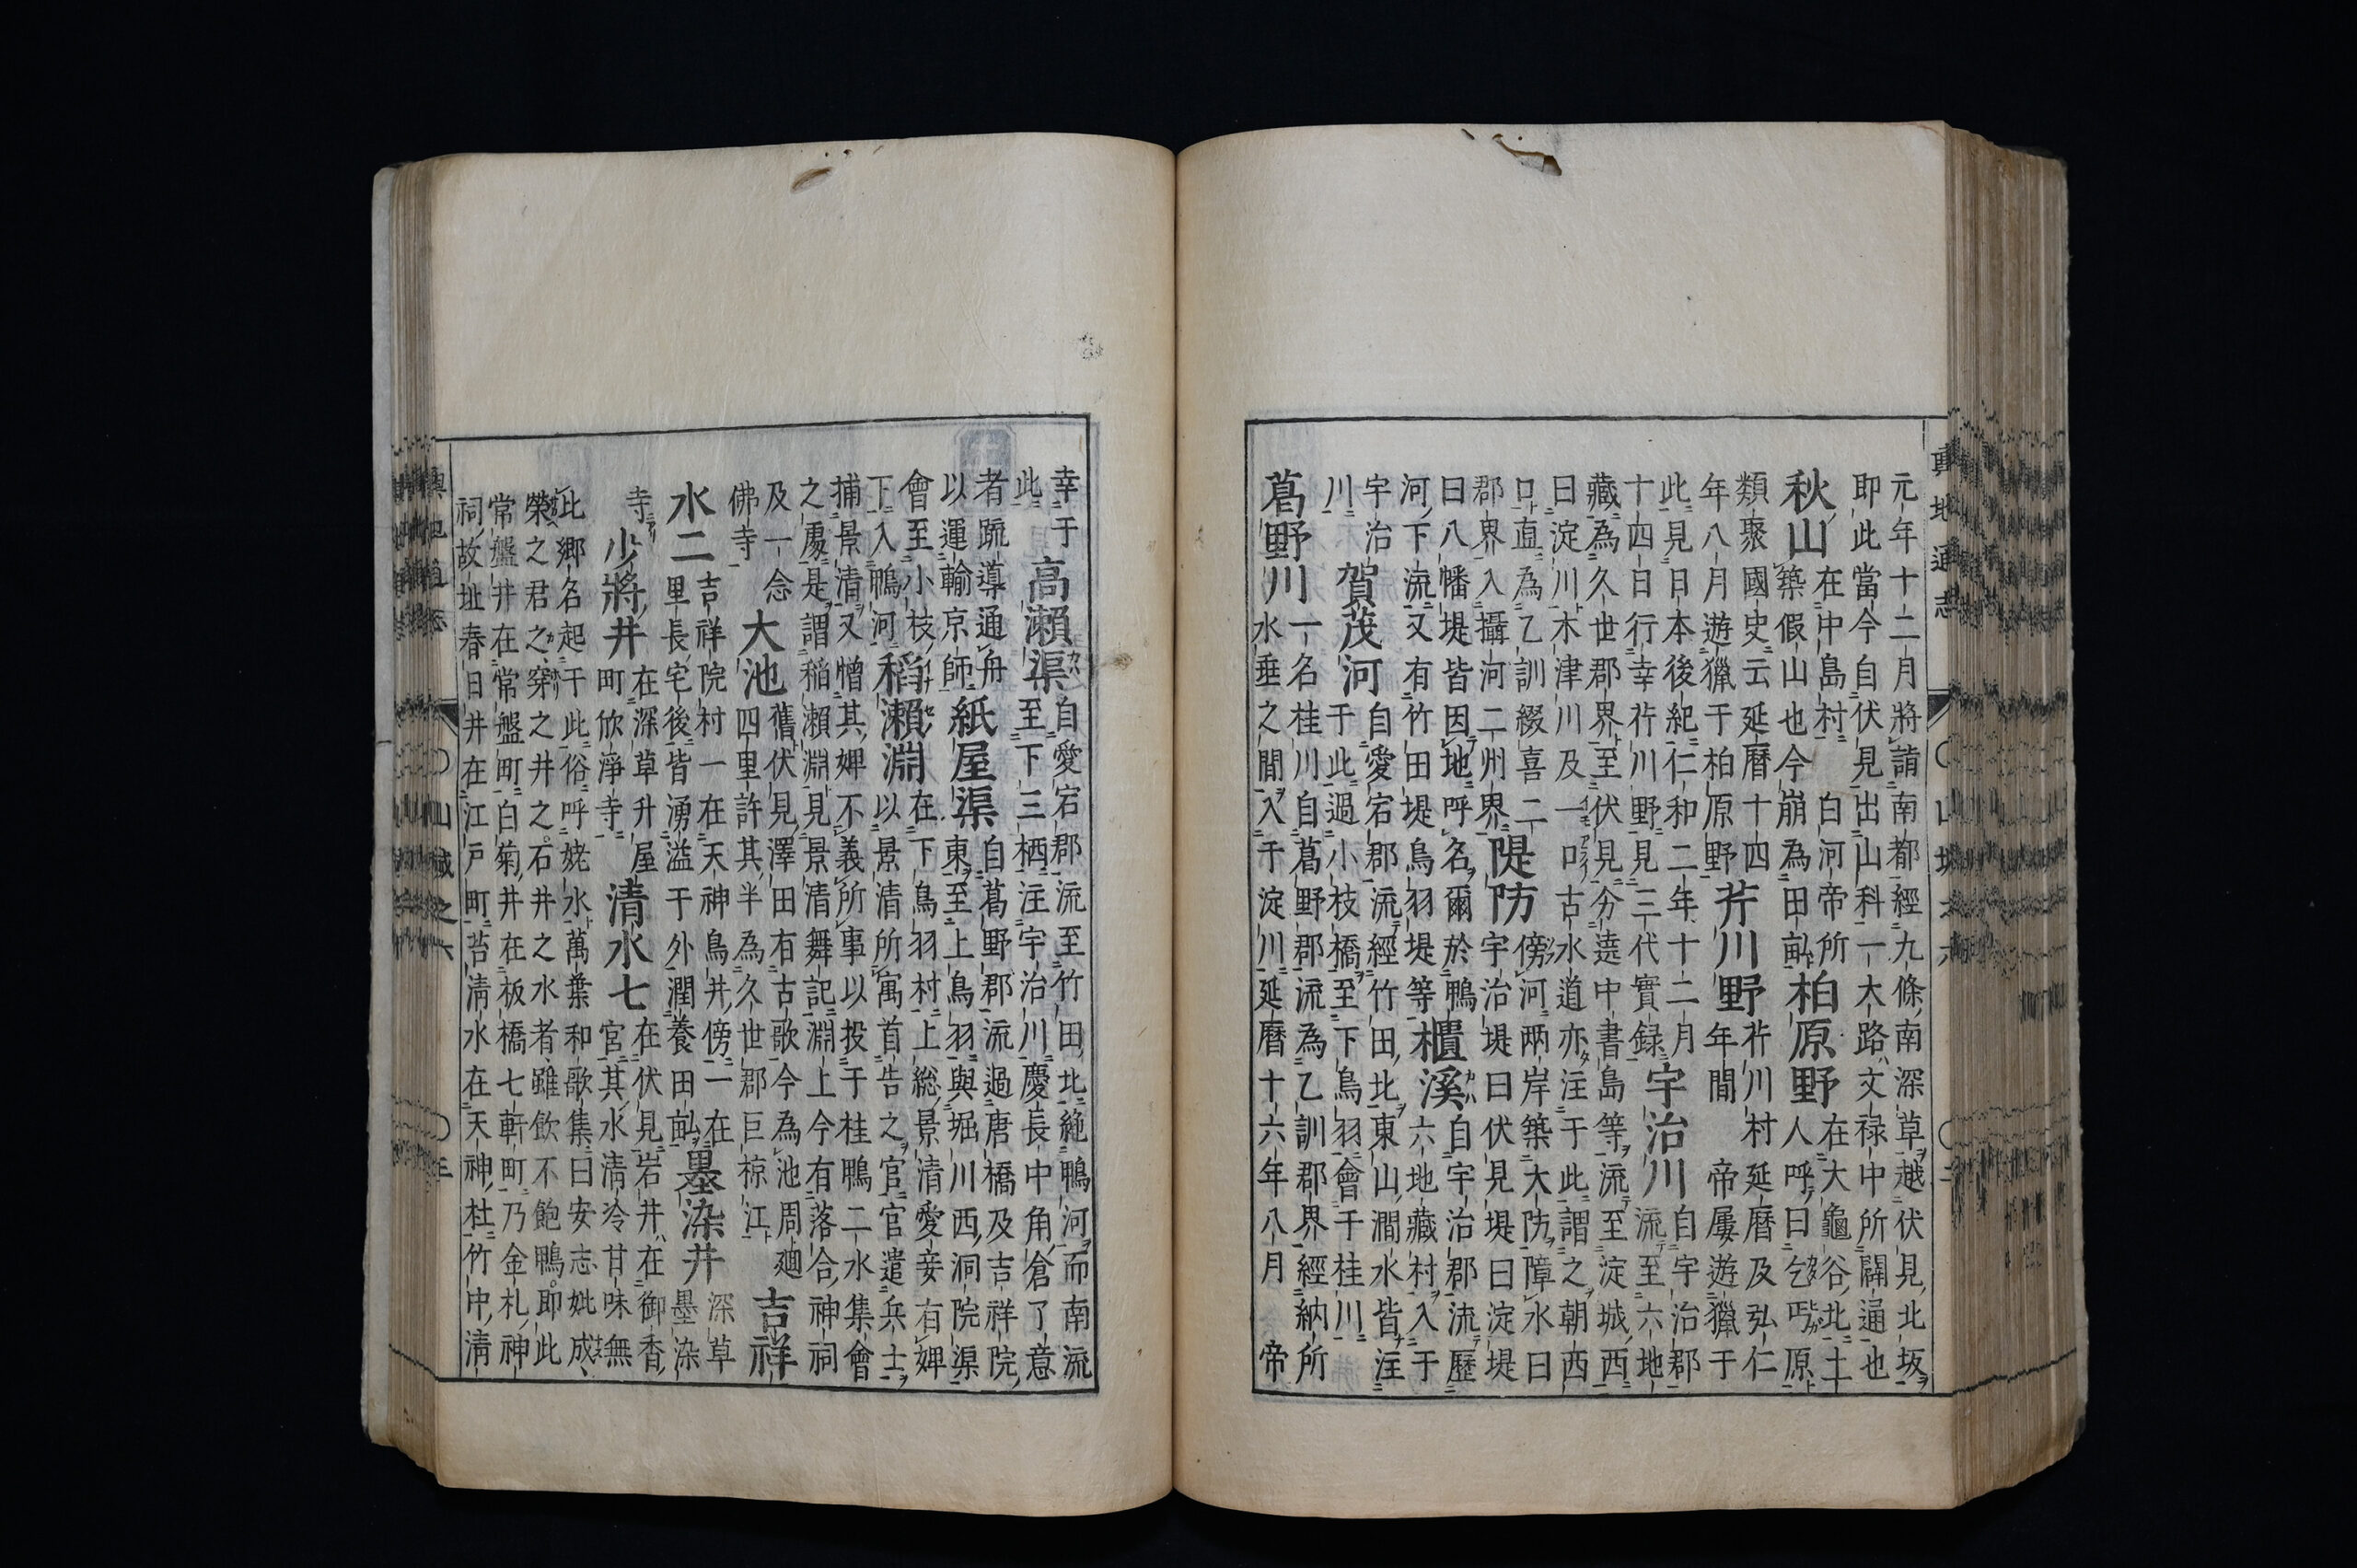 輿地通志 山城之六 二
元年十二月將詣南都經九條南深草越伏見北坂
即此當今自伏見出山科一大路文禄中所闢通也
秋山
在中島村 白河帝所
築假山也今崩為田畝
柏原野
在大龜谷北土
人呼曰乞丐原
類聚國史云延曆十四
年八月遊獵于柏原野
芹川野
芹川村 延曆及弘仁
年間 帝屢遊獵于
此見日本後紀仁和二年十二月
十四日行幸芹川野見三代實録
宇治川
自宇治郡
流至六地
藏為久世郡界至伏見分遶中書島等流至淀城西
曰淀川木津川及一口古水道亦注于此謂之朝西
口直為乙訓綴喜二
郡界入攝河二州界
隄防
傍河兩岸築大防障水曰
宇治堤曰伏見堤曰淀堤
曰八幡堤皆因地呼名爾於鴨
河下流又有竹田堤鳥羽堤等
櫃溪
自宇治郡流歷
六地藏村入于
宇治
川
賀茂河
自愛宕郡流經竹田北東山澗水皆注
于此過小枝橋至下鳥羽會于桂川
葛野川
一名桂川自葛野郡流為乙訓郡界經納所
水垂之間入于淀川延曆十六年八月 帝
幸于
此
高瀨渠
自愛宕郡流至竹田北絶鴨河而南流
至下三栖注宇治川慶長中角倉了意
者疏導通舟
以運輸京師
紙屋渠
自葛野郡流過唐橋及吉祥院
東至上鳥羽與堀川西洞院渠
會至小枝
下入鴨河
稻瀨淵
在下鳥羽村上総景清愛妾有婢
以景清所寓首告之官官遣兵士
捕景清又憎其婢不義所事以投于桂鴨二水集會
之處是謂稲瀨淵見景清舞記淵上今有落合神祠
及一念
佛寺
大池
舊伏見澤田右古歌今為池周廻
四里許其半為久世郡巨椋江
吉祥
水二
吉祥院村一在天神鳥井傍一在
里長宅後皆湧溢于外潤養田畝
墨染井
深草
墨染
寺
少將井
在深草升屋
町欣淨寺
清水七
在伏見岩井在御香
宮其水清冷甘味無
此鄉名起于此俗呼姥水萬葉和歌集曰安志妣成
榮之君之穿之井之石井之水者雖飲不飽鴨即此
常盤井在常盤町白菊井在板橋七軒町乃金札神
祠故址春日井在江戸町苔清水在天神杜竹中清
輿地通志 山城之六 三